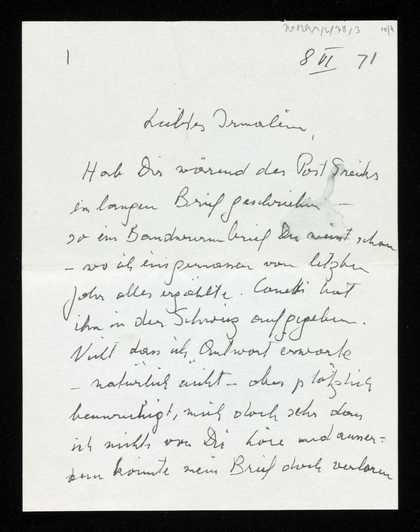 1
8 VI 71
Liebtes Irmalein,
Hab Dir wärend des Post Streiks
ein langen Brief geschrieben –
so ein Bandwurmbrief
– wo ich einigermasen vom letzten
Jahr alles erzählte. Canetti hat
ihn in der Schweiz aufgegeben.
Nicht dass ich Antwort erwarte
– natürlich nicht – aber plötzlich
beunruhigt, mich doch sehr dass
ich nichts von Dir höre und ausser-
dem könnte mein Brief doch verloren